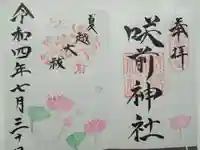 奉拝
咲前神社
夏越大祓
令和四年七月三十日